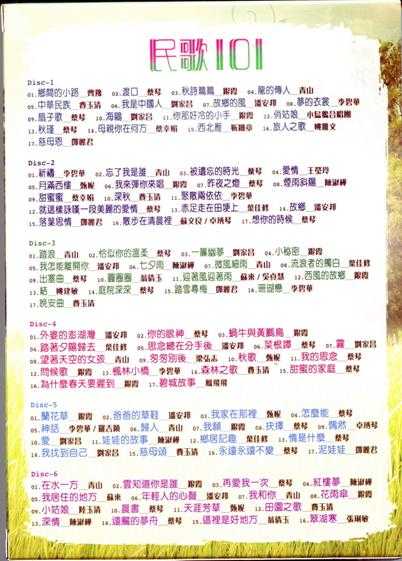 民歌101
Disc-1
01.鄉間的小路 齊豫 02.渡口 蔡琴 03.秋詩篇篇 銀霞 04.龍的傳人 青山
05.中華民族 費玉清 06.我是中國人 劉家昌 07.故鄉的風 潘安邦 08.夢的衣裳 李碧華
09.扇子歌 蔡琴 10.海鷗 劉家昌 11.你那好冷的小手 銀霞 12.俏姑娘
13.秋瑾 蔡琴 14.母親你在何方 蔡幸娟 15.西北雁 16.旅人之歌
17.慈母恩 鄧麗君
Disc-2
01.祈禱 李碧華 02.忘了我是誰 青山 03.被遺忘的時光 蔡琴 04.愛情 王瑩玲
05.月滿西樓 甄妮 06.我來彈你來唱 銀霞 07.昨夜之燈 蔡琴 08.煙雨斜陽 陳淑樺
09.甜蜜蜜 蔡幸娟 10.深秋 費玉清 11.聚散兩依依 李碧華
12.就這樣詠嘆一段美麗的愛情 蔡琴 13.赤足走在田埂上 葉佳修 14.故鄉 潘安邦
15.落葉思情 鄧麗君 16.散步在清晨裡 蔡琴 17.想你的時候 蔡琴
Disc-3
01.踏浪 青山 02.恰似你的溫柔 蔡琴 03.一簾幽夢 劉家昌 04.小秘密 銀霞
05.我怎能離開你 潘安邦 06.七夕雨 陳淑樺 07.微風細雨 青山 08.流浪者的獨白 葉佳修
09.出塞曲 蔡琴 10.圓圈圈 11.迎著風迎著雨 12.西風的故鄉 銀霞
13.結 姚建敏 14.庭院深深 蔡琴 15.踏雪尋梅 鄧麗君 16.珊瑚戀 李碧華
17.晚安曲 費玉清
Disc-4
01.外婆的澎湖灣 潘安邦 02.你的眼神 蔡琴 03.蝸牛與黃鸝鳥 銀霞
04.踏著夕陽歸去 葉佳修 05.思念總在分手後 潘安邦 06.菜根譚 蔡琴 07.霧 劉家昌
08.望著天空的女孩 青山 09.匆匆別後 梁弘志 10.秋歌 甄妮 11.我的思念 蔡琴
12.問候歌 銀霞 13.楓林小橋 李碧華 14.森林之歌 費玉清 15.甜蜜的家庭 蔡琴
16.為什麼春天要遲到 銀霞 17.碧城故事 鳳飛飛
Disc-5
01.蘭花草 銀霞 02.爸爸的草鞋 潘安邦 03.我家在那裡 甄妮 04.怎麼能 蔡琴
05.神話 李碧華/羅吉鎮 06.歸人 青山 07.我願 銀霞 08.抉擇 蔡琴 09.偶然
10.愛 劉家昌 11.娃娃的故事 陳淑樺 12.鄉居記趣 葉佳修 13.情是什麼 蔡琴
14.我找到自己 劉家昌 15.慈母頌 費玉清 16.永遠永遠不變 蔡琴 17.泥娃娃 鄧麗君
Disc-6
01.在水一方 青山 02.雲知道你是誰 銀霞 03.再愛我一次 蔡琴 04.紅樓夢 陳淑樺
05.我居住的地方 蘇來 06.年輕人的心聲 潘安邦 07.我和你 青山 08.花雨傘 銀霞
09.小姑娘 10.晨書 蔡琴 11.天涯芳草 甄妮 12.田園之歌 費玉清
13.深情 陳淑樺 14.遠颺的夢舟 蔡琴 15.這裡是好地方 16.翠湖寒